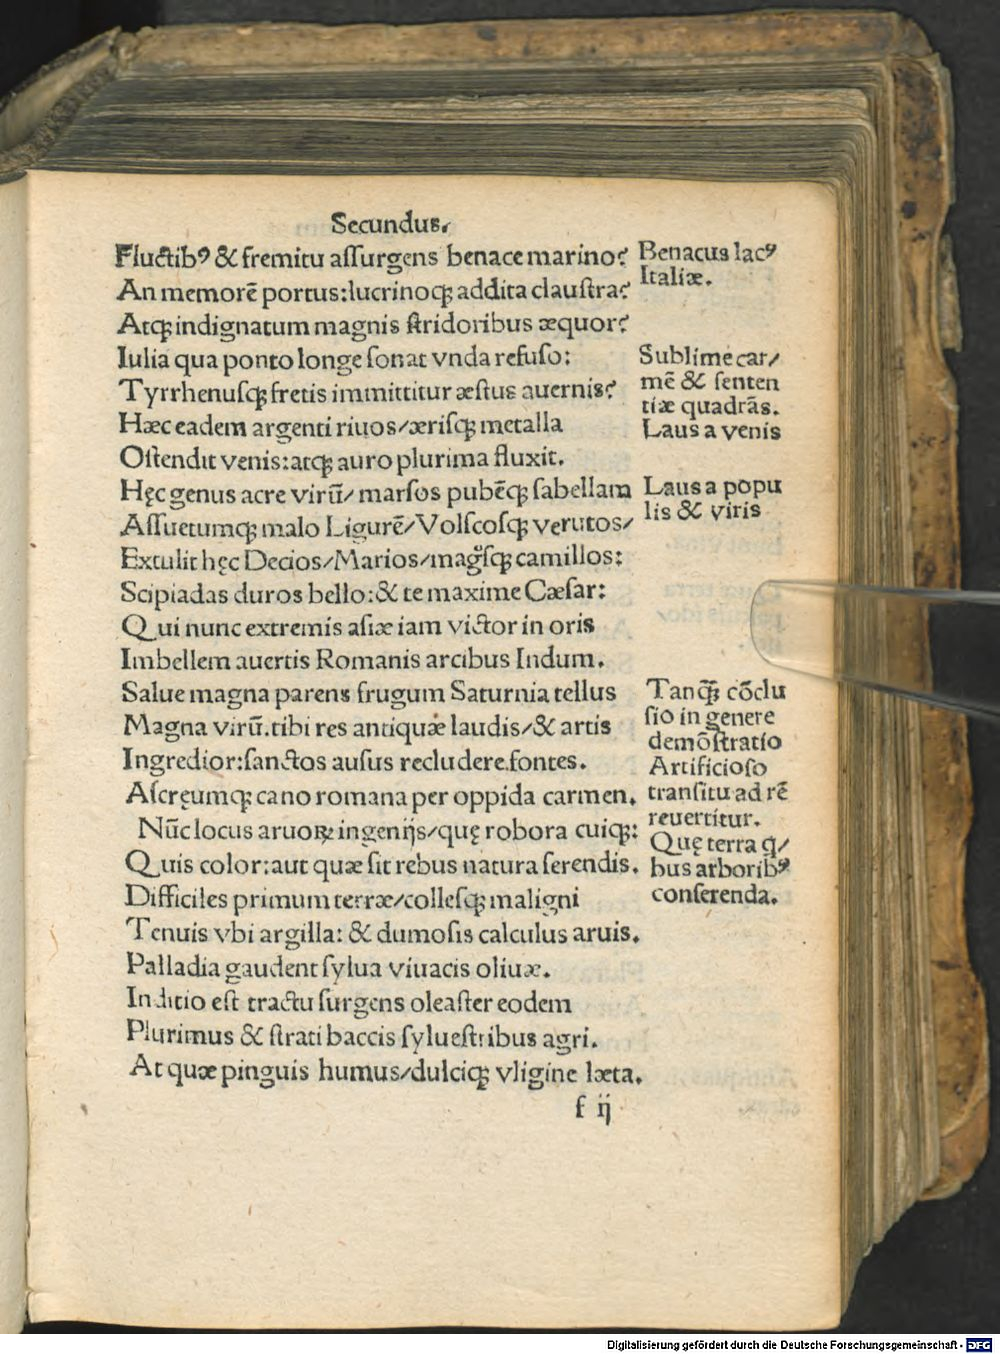 Secundus.
Fluctibꝰ & fremitu aſſurgens benace marino?
An memorē portus:lucrinoq̨ addita clauſtra?
Atq̨ indignatum magnis ſtridoribus æquor?
Iulia qua ponto longe ſonat vnda refuſo:
Tyrrhenuſq̨ fretis immittitur æſtus auernis?
Hæc eadem argenti riuos/æriſq̨ metalla
Oſtendit venis:atq̨ auro plurima fluxit.
Hęc genus acre virū/ marſos pubēq̨ ſabellam
Aſſuetumq̨ malo Ligurē/Volſcoſq̨ verutos/
Extulit hęc Decios/Marios/mag̃ſq̨ camillos:
Scipiadas duros bello:& te maxime Cæſar:
Qui nunc extremis aſiæ iam victor in oris
Imbellem auertis Romanis arcibus Indum.
Salue magna parens frugum Saturnia tellus
Magna virū.tibi res antiquæ laudis/& artis
Ingredior:ſanctos auſus recludere.fontes.
Aſcręumq̨ cano romana per oppida carmen.
Nūc locus aruoꝝ ingenijs/quę robora cuiq̨:
Quis color:aut quæ ſit rebus natura ferendis.
Difficiles primum terræ/colleſq̨ maligni
Tenuis vbi argilla: & dumoſis calculus aruis.
Palladia gaudent ſylua viuacis oliuæ.
Inditio eſt tractu ſurgens oleaſter eodem
Plurimus & ſtrati baccis ſylueſtribus agri.
At quæ pinguis humus/dulciq̨ vligine læta.
f ij
Benacus lacꝰ
Italiæ.
Sublime car/
mē & ſenten
tiæ quadrās.
Laus a venis
Laus a popu
lis & viris
Tanq̨̃ cōclu
ſio in genere
demōſtratio
Artificioſo
tranſitu ad rē
reuertitur.
Quę terra q̃/
bus arboribꝰ
conſerenda.
Digitalisierung gefördert durch die Deutsche Forschungsgemeinschaft - DFG